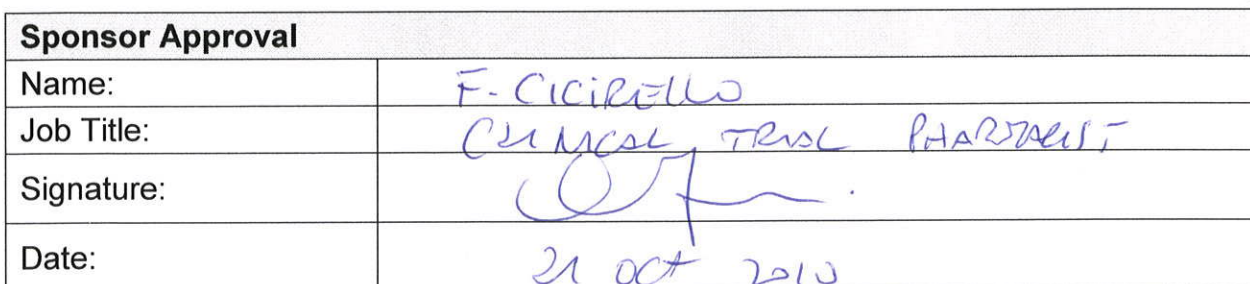 Sponsor Approval
Name: F. CICIRELLO
Job Title: CLINICAL TRIAL PHARMACIST
Signature:
Date: 21 OCT 2010